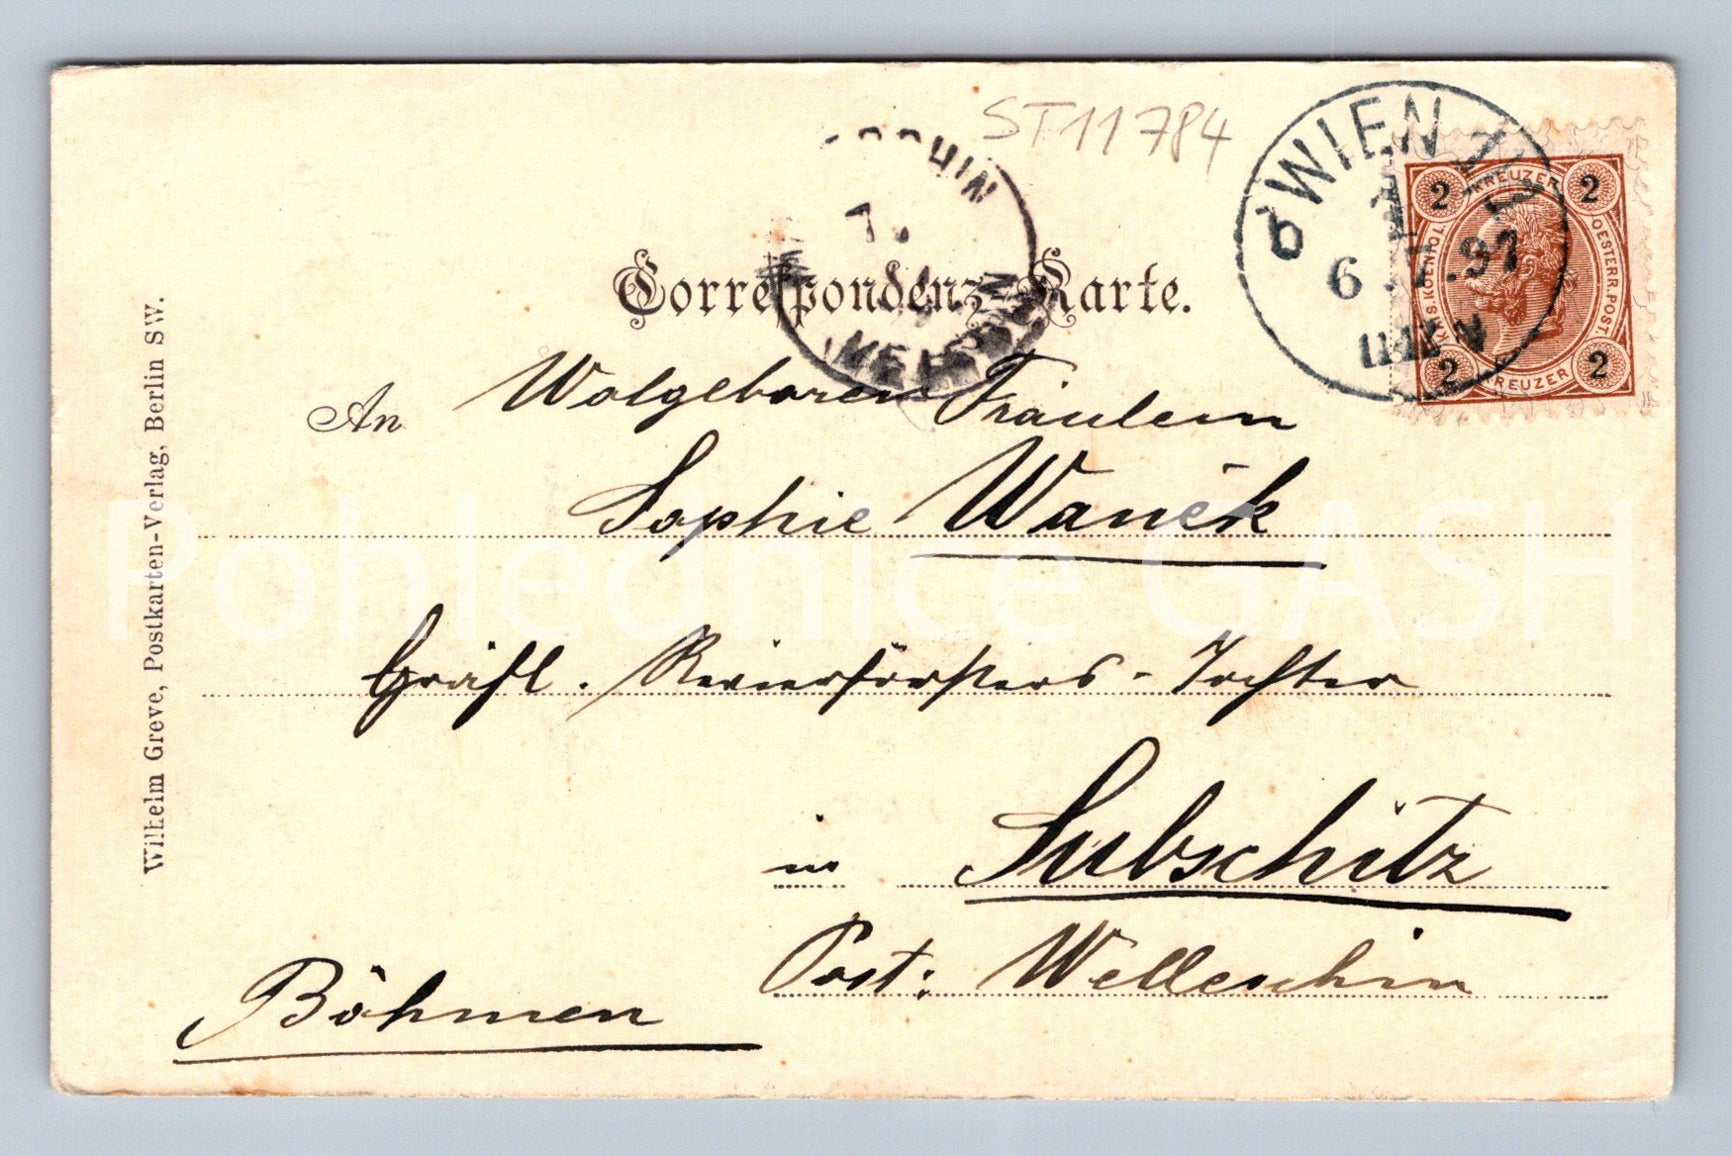 ST11784
WIEN
6 . 7 . 97
2 KREUZER 2
K.K.S.KOENIGL. OESTERR.POST.
2 KREUZER 2
7.
Correspondenz-Karte.
An Wolgeboren Fräulein
Sophie Wanĕk
Gräfl. Revierförsters-Tochter
in Subschitz
Post: Welleschin
Böhmen
Wilhelm Greve, Postkarten-Verlag, Berlin SW.
Pohlednice GASH